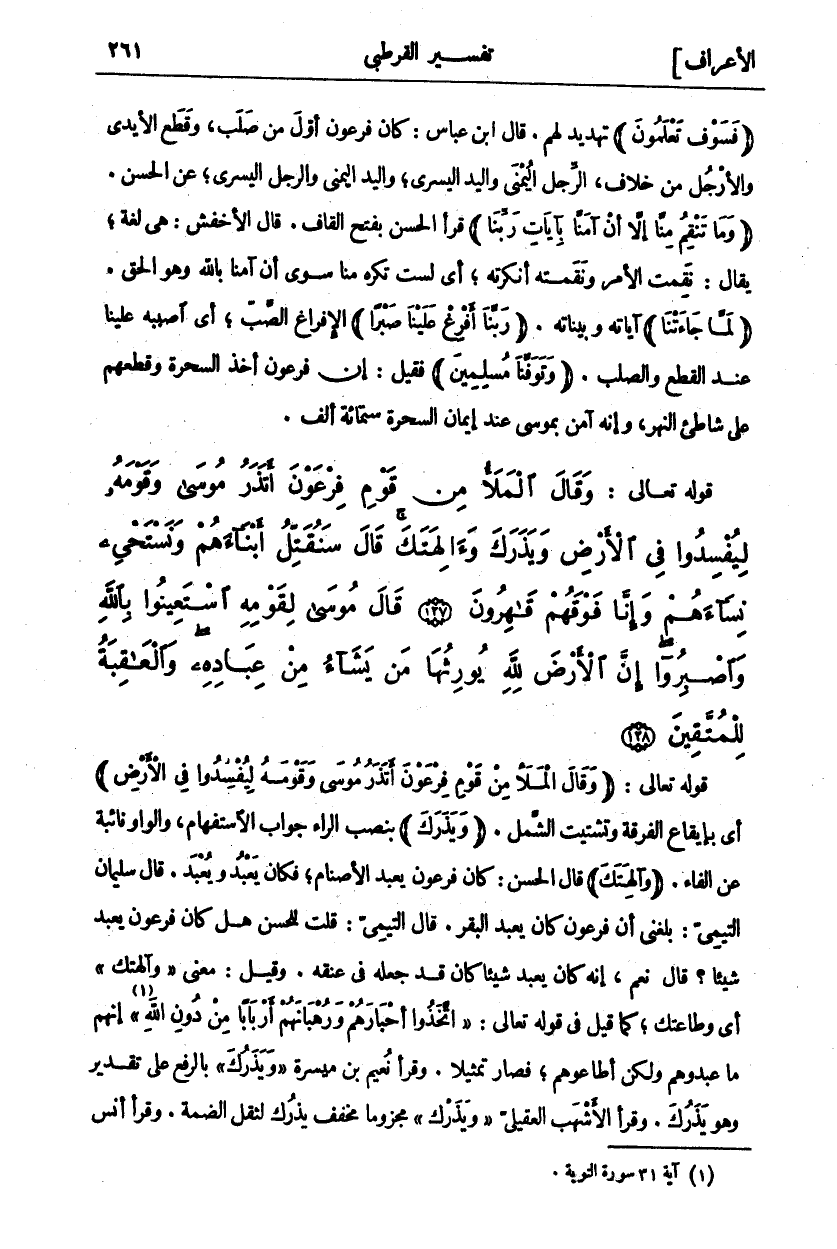 الأعراف] تفسير القرطبي ٢٦١
﴿فَسَوْفَ تَعْلَمُونَ﴾ تهديد لهم . قال ابن عباس : كان فرعون أوّلَ من صَلَب، وقَطع الأيدى
والأرْجُل من خلاف، الرِّجل اليُمْنَى واليد اليسرى؛ واليد اليمنى والرجل اليسرى؛ عن الحسن .
﴿وَمَا تَنْقِمُ مِنَّا إِلَّا أَنْ آمَنَّا بِآيَاتِ رَبِّنَا﴾ قرأ الحسن بفتح القاف . قال الأخفش : هى لغة ؛
يقال : نَقِمت الأمر ونَقَمته أنكرته ؛ أى لست تكره منا سوى أن آمنا بالله وهو الحق .
﴿لَمَّا جَاءَتْنَا﴾ آياته وبيناته . ﴿رَبَّنَا أَفْرِغْ عَلَيْنَا صَبْرًا﴾ الإفراغ الصَّبّ ؛ أى أصببه علينا
عند القطع والصلب . ﴿وَتَوَفَّنَا مُسْلِمِينَ﴾ فقيل : إن فرعون أخذ السحرة وقطعهم
على شاطئ النهر، وإنه آمن بموسى عند إيمان السحرة ستمائة ألف .
قوله تعالى : وَقَالَ ٱلْمَلَأُ مِن قَوْمِ فِرْعَوْنَ أَتَذَرُ مُوسَىٰ وَقَوْمَهُۥ
لِيُفْسِدُوا فِى ٱلْأَرْضِ وَيَذَرَكَ وَءَالِهَتَكَ ۚ قَالَ سَنُقَتِّلُ أَبْنَآءَهُمْ وَنَسْتَحْىِۦ
نِسَآءَهُمْ وَإِنَّا فَوْقَهُمْ قَـٰهِرُونَ ﴿١٢٧﴾ قَالَ مُوسَىٰ لِقَوْمِهِ ٱسْتَعِينُوا بِٱللَّهِ
وَٱصْبِرُوٓا ۖ إِنَّ ٱلْأَرْضَ لِلَّهِ يُورِثُهَا مَن يَشَآءُ مِنْ عِبَادِهِۦ ۖ وَٱلْعَـٰقِبَةُ
لِلْمُتَّقِينَ ﴿١٢٨﴾
قوله تعالى : ﴿وَقَالَ الْمَلَأُ مِنْ قَوْمِ فِرْعَوْنَ أَتَذَرُ مُوسَى وَقَوْمَهُ لِيُفْسِدُوا فِى الْأَرْضِ﴾
أى بإيقاع الفرقة وتشتيت الشَّمل . ﴿وَيَذَرَكَ﴾ بنصب الراء جواب الاستفهام، والواو نائبة
عن الفاء . ﴿وَآلِهَتَكَ﴾ قال الحسن : كان فرعون يعبد الأصنام؛ فكان يَعْبُد ويُعْبَد . قال سليمان
التيمىّ : بلغنى أن فرعون كان يعبد البقر . قال التيمىّ : قلت للحسن هل كان فرعون يعبد
شيئا ؟ قال نعم ، إنه كان يعبد شيئا كان قد جعله فى عنقه . وقيل : معنى « وآلهتك »
أى وطاعتك ؛ كما قيل فى قوله تعالى : « اتَّخَذُوا أَحْبَارَهُمْ وَرُهْبَانَهُمْ أَرْبَابًا مِنْ دُونِ اللهِ (١) » إنهم
ما عبدوهم ولكن أطاعوهم ؛ فصار تمثيلا . وقرأ نُعيم بن ميسرة «وَيَذَرُكَ» بالرفع على تقدير
وهو يَذَرُكَ . وقرأ الأشهب العقيلىّ « ويَذَرْك » مجزوما مخفف يذرُك لثقل الضمة . وقرأ أنس
(١) آية ٣١ سورة التوبة .